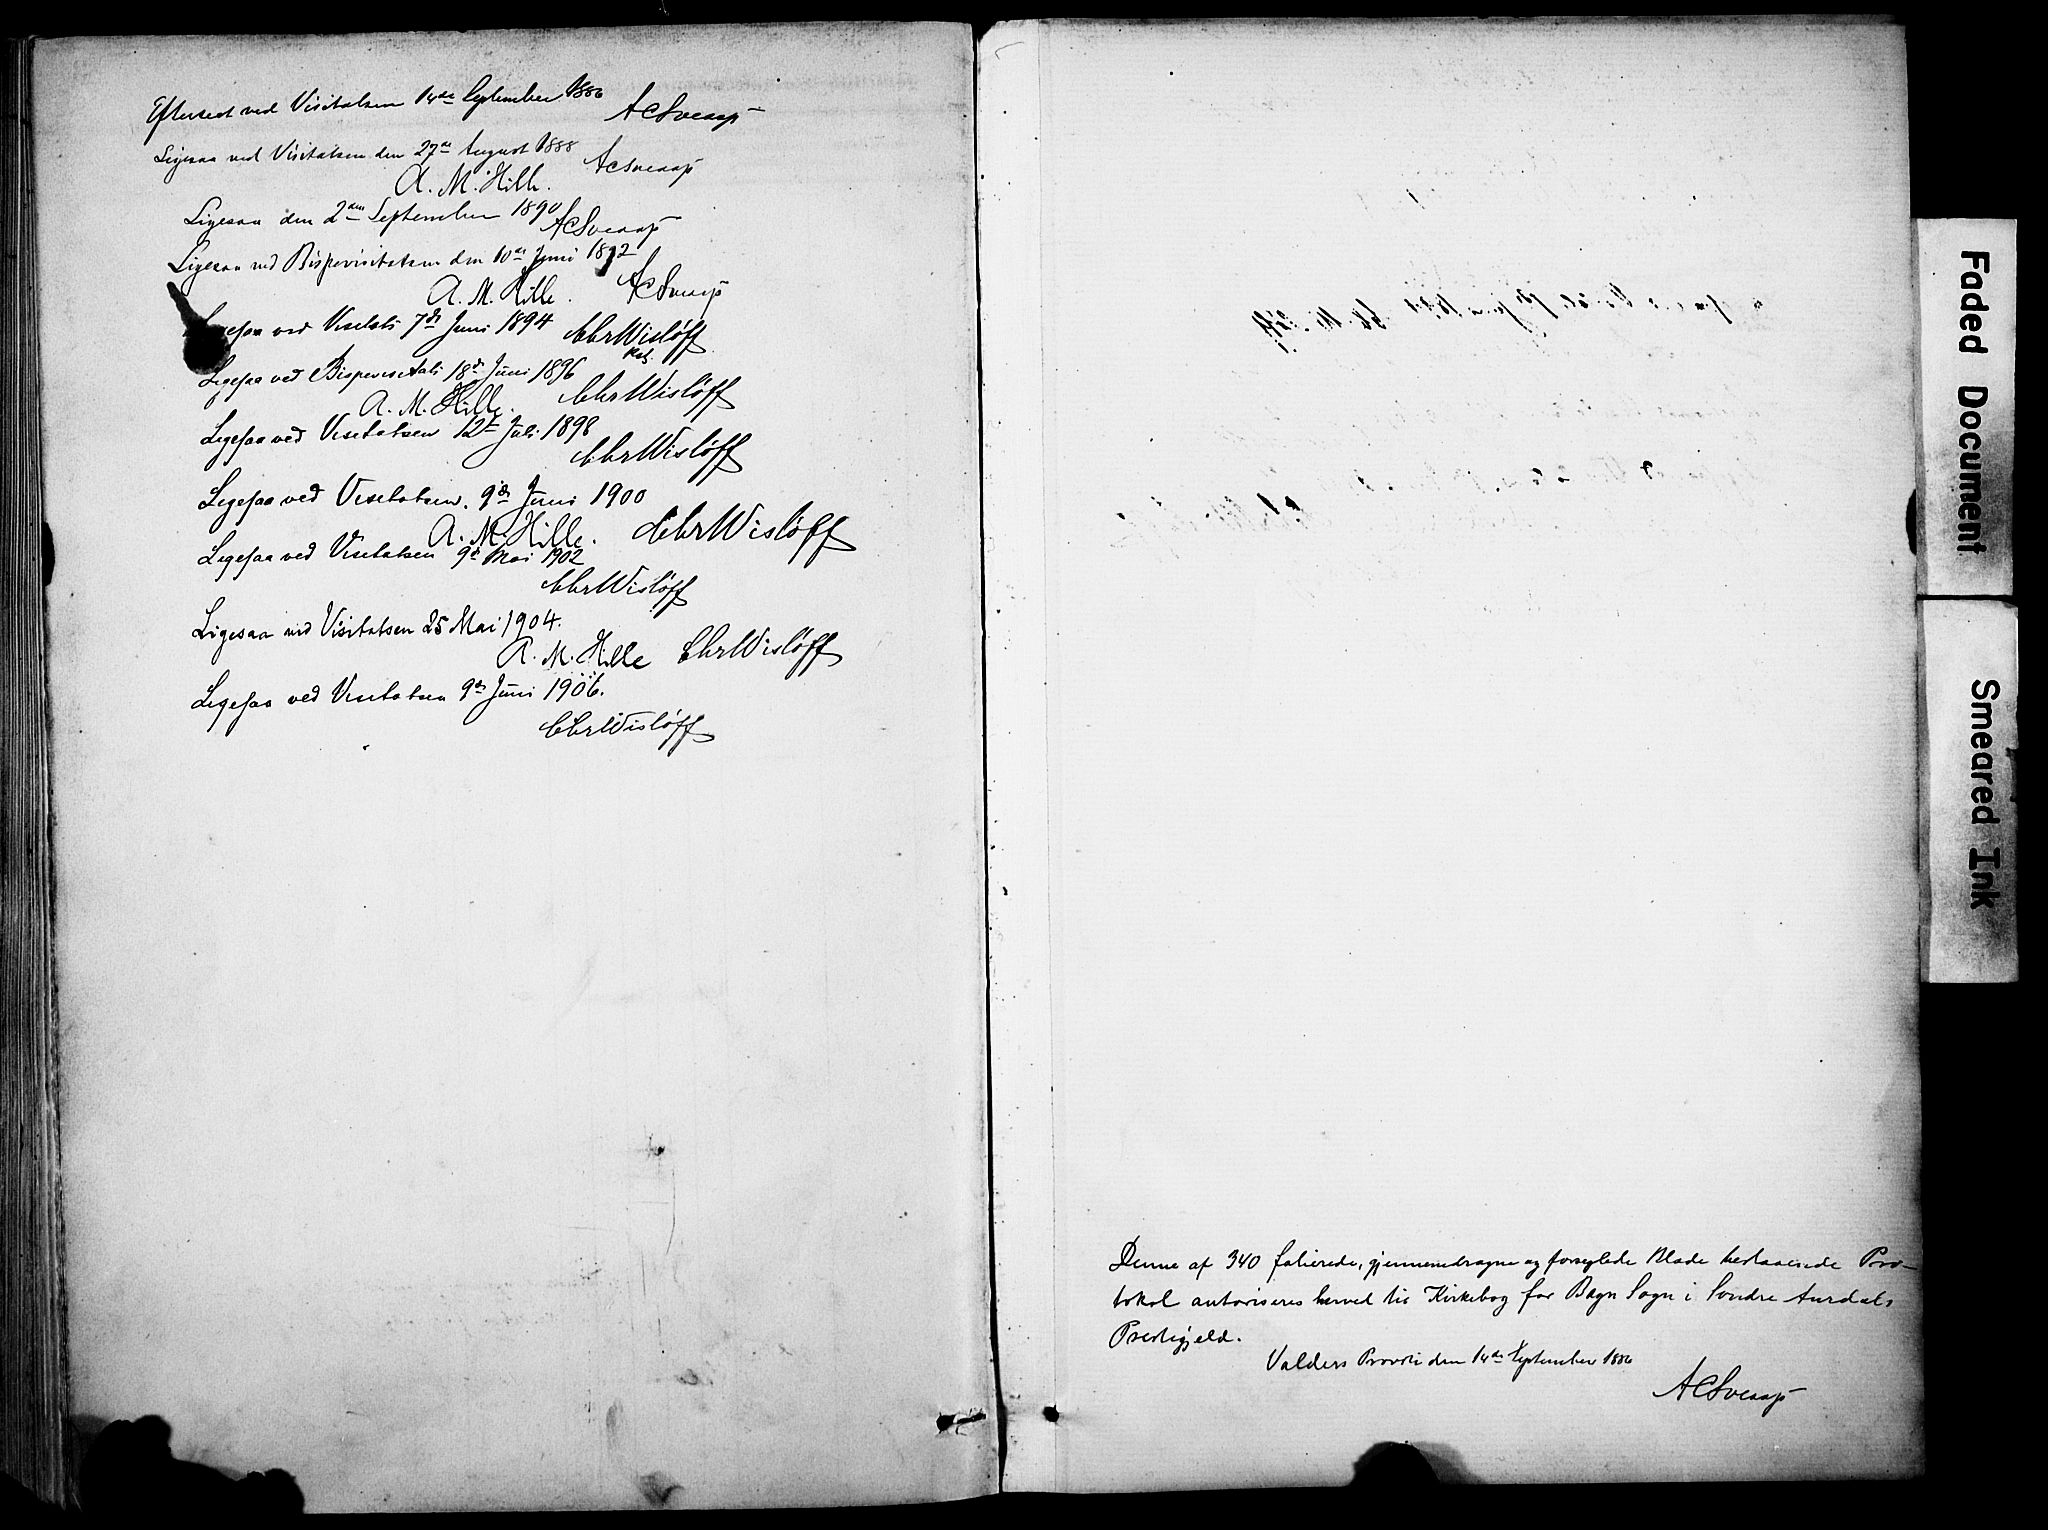 Efterseet ved Visitatsen 14de September 1886
ACSveaap
Ligesaa ved Visitatsen den 27de August 1888
ACSveaap
A. M. Hille.
Ligesaa den 2den September 1890
ACSveaap
Ligesaa ved Bispevisitatsen den 10de Juni 1892
A. M. Hille.
ACSveaap
Ligesaa ved Visitats 7de Juni 1894
Chr Wisløff
Ligesaa ved Bispevisitats 18de Juni 1896
Chr Wisløff
A. M. Hille.
Ligesaa ved Visitatsen 12te Juli 1898
Chr Wisløff
Ligesaa ved Visitatsen 9de Juni 1900
A. M. Hille.
Chr Wisløff
Ligesaa ved Visitatsen 9de Mai 1902
Chr Wisløff
Ligesaa ved Visitatsen 25 Mai 1904.
A. M. Hille
Chr Wisløff
Ligesaa ved Visitatsen 9de Juni 1906.
Chr Wisløff
Denne af 340 folierede, gjennemdragne og forseglede Blade bestaaende Pro-
tokol autoriseres herved til Kirkebog for Bagn Sogn i Søndre Aurdals
Præstegjeld.
Valders Provsti den 14de September 1886
ACSveaap
Faded Document
Smeared Ink